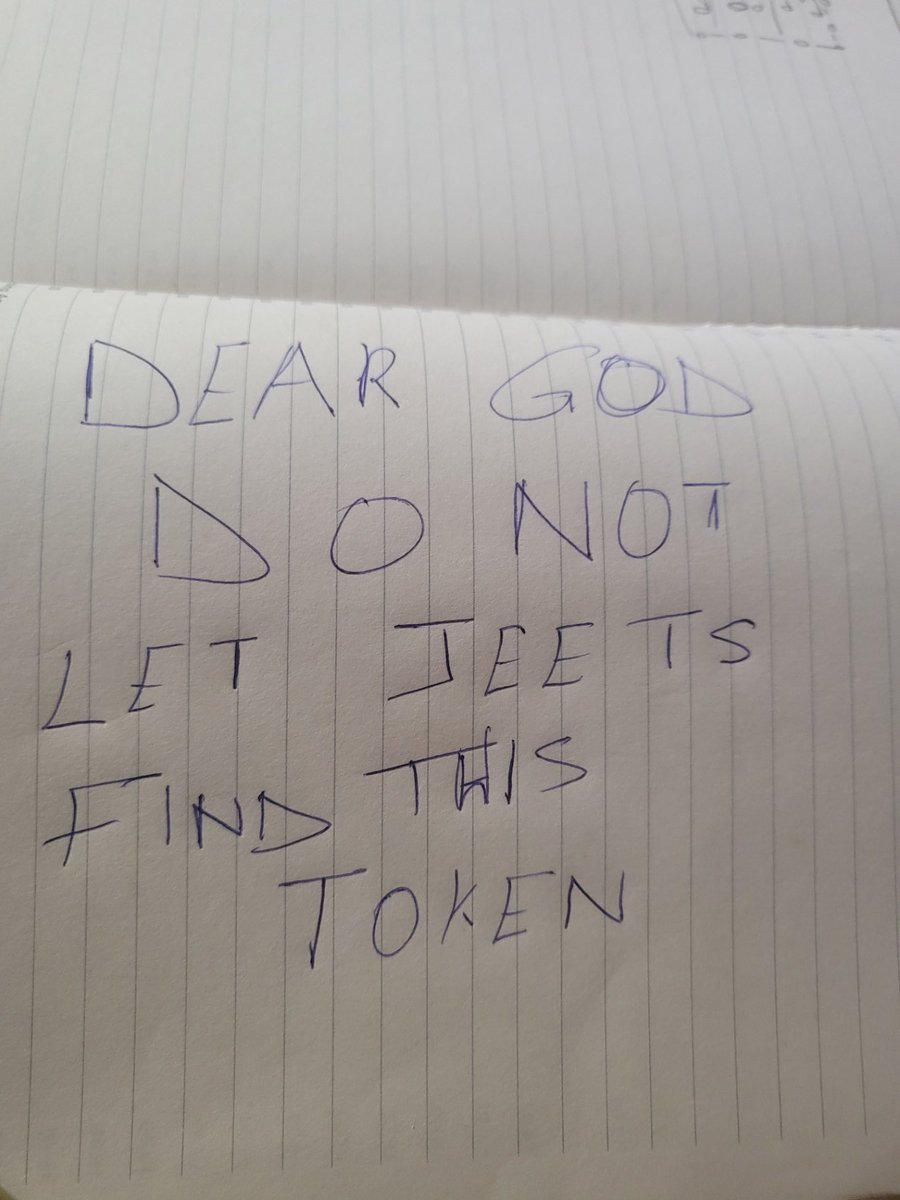 DEAR GOD
DO NOT
LET JEETS
FIND THIS
TOKEN